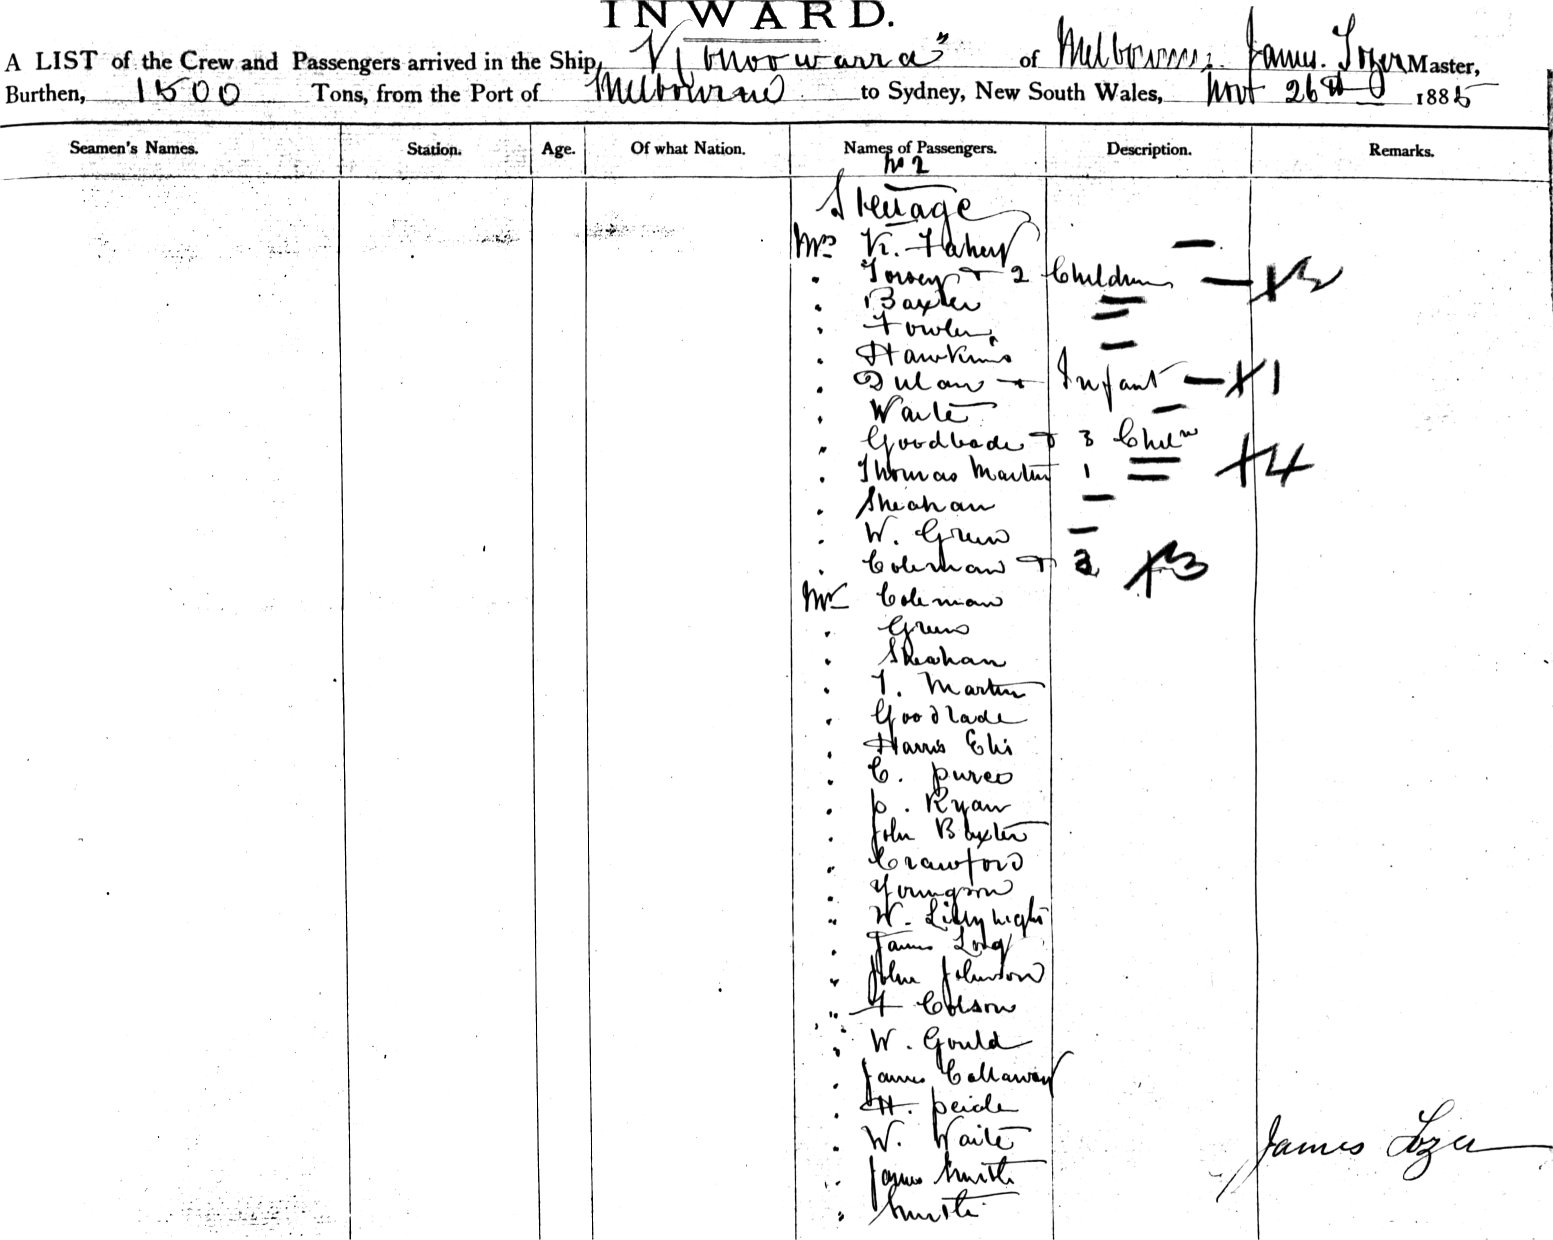 INWARD.
A LIST of the Crew and Passengers arrived in the Ship, of Melbourne, James. Tozer Master,
Burthen, 1500 Tons, from the Port of Melbourne to Sydney, New South Wales, Novr 26th 1885
Seamen's Names. Station. Age. Of what Nation. Names of Passengers. Description. Remarks.
No 2
Steerage
Mrs K. Fahey —
. Tovey + 2 Children —
. Baxter —
. Fowler —
. Hawkins —
. + Infant — X 1
. Waite —
. Goodlade + 3 Chiln
. Thomas Martin 1 +4
. Sheahan —
. W. Green —
. Coleman +
Mr Coleman
. Green
. Sheahan
. T. Martin
. Goodlade
. Harris Eli
. C.
. P. Ryan
. John Baxter
. Crawford
. Youngson
" W.
. James Long
" John Johnson
" F Colson
" W. Gould
. James Callaway
. H.
. W. Waite
" James Smith
" Smith
James Tozer